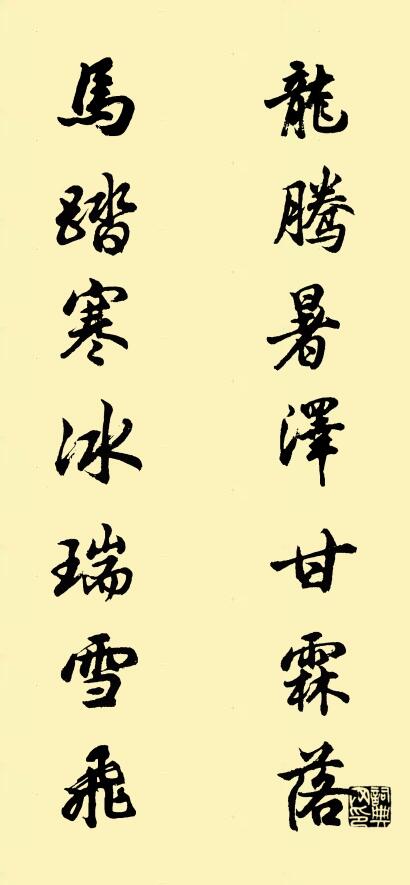 龍騰暑澤甘霖落
馬踏寒冰瑞雪飛
詞典